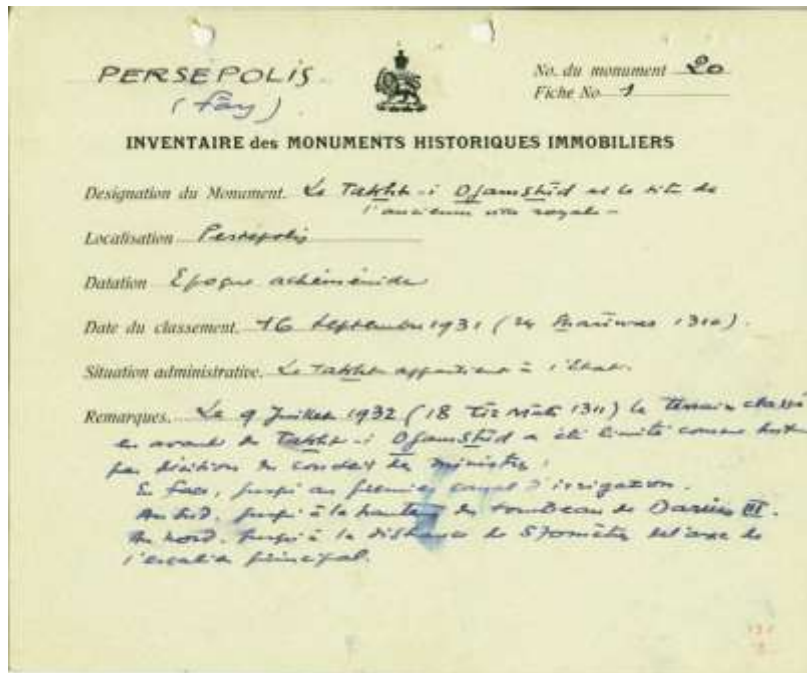 PERSEPOLIS
(Fârs)
No. du monument 20
Fiche No 1
INVENTAIRE des MONUMENTS HISTORIQUES IMMOBILIERS
Designation du Monument. Le Takht-i Djamshîd et le site de
l'ancienne ville royale –
Localisation Persépolis
Datation Epoque achéménide
Date du classement. 16 Septembre 1931 (24 1310).
Situation administrative. Le Takht appartient à l'Etat.
Remarques. Le 9 Juillet 1932 (18 Tîr Mâh 1311) le terrain classé
en avant du Takht-i Djamshîd a été limité comme suit
par décision du conseil des ministres :
En face, jusqu'au premier canal d'irrigation.
Au Sud, jusqu'à la hauteur du tombeau de Darius III.
Au nord, jusqu'à la distance de mètres de l'axe de
l'escalier principal.